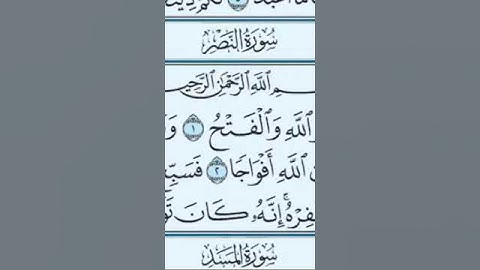 لَكُمْ دِينُ
سُورَةُ النَّصْرِ
ـمِ ٱللَّهِ ٱلرَّحْمَٰنِ ٱلرَّحِيـ
ٱللَّهِ وَٱلْفَتْحُ ١ وَ
ٱللَّهِ أَفْوَاجًا ٢ فَسَبِّ
ـفِرْهُ ۚ إِنَّهُۥ كَانَ تَوَّ
سُورَةُ المَسَدِ